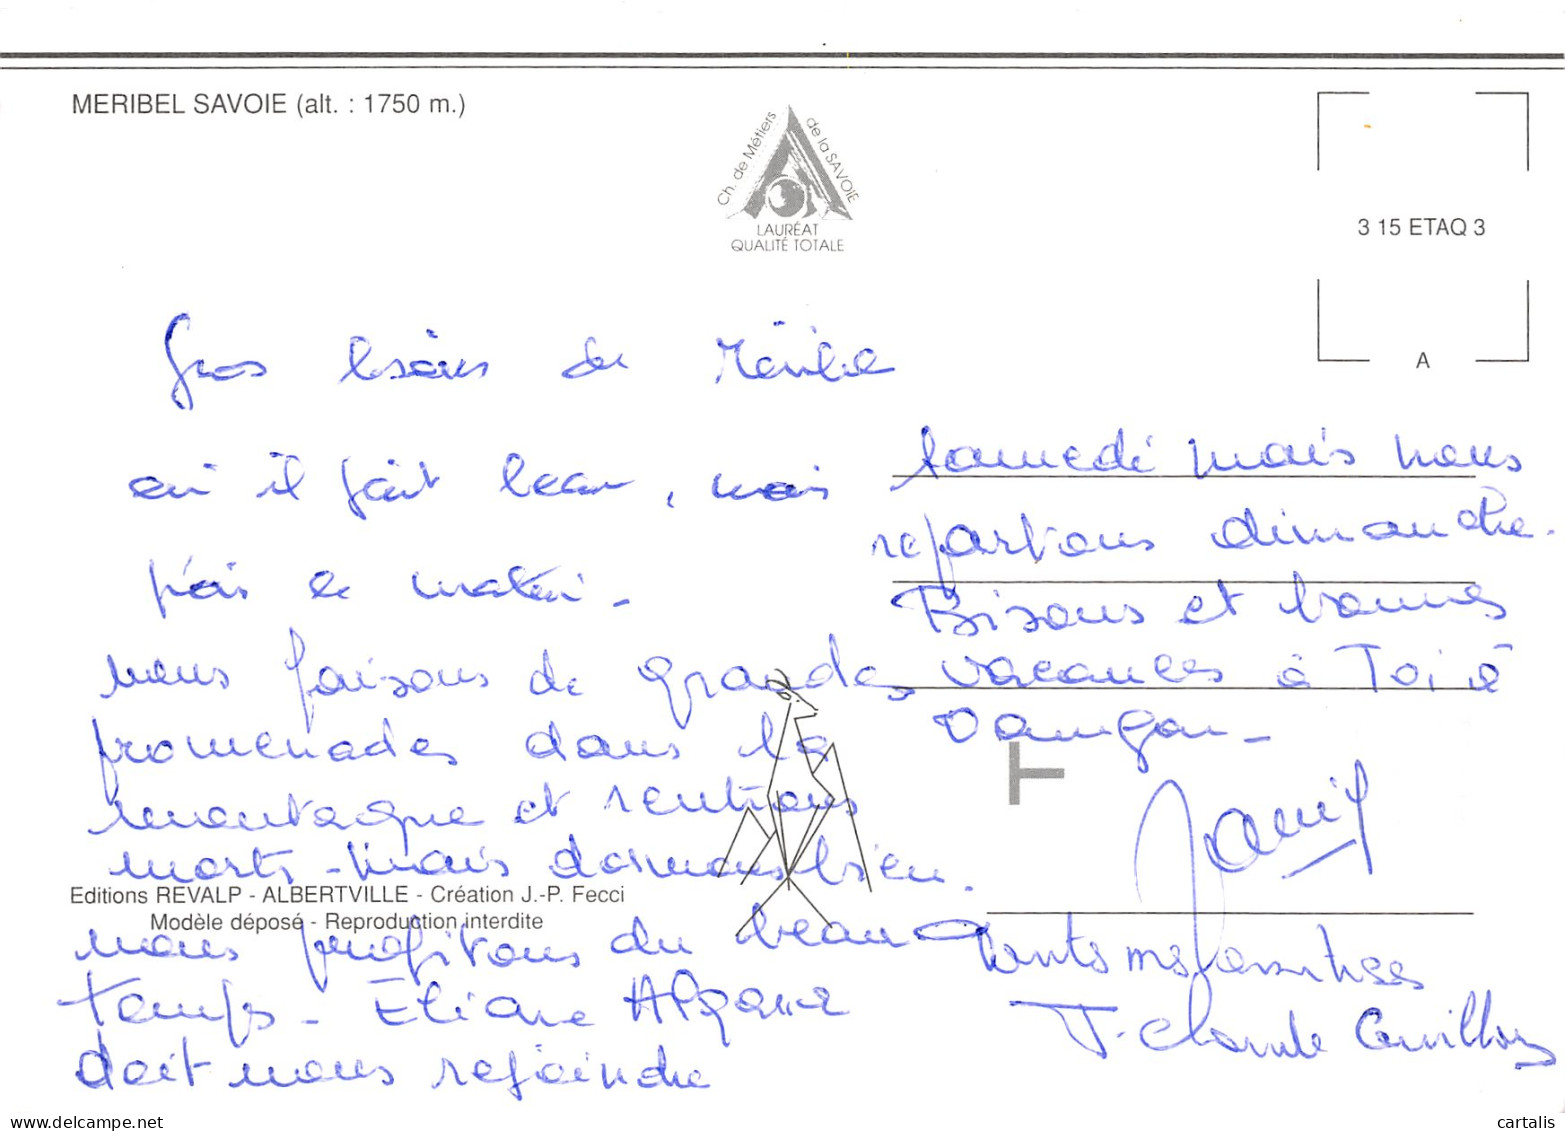 MERIBEL SAVOIE (alt. : 1750 m.)
Ch. de Métiers de la SAVOIE
LAURÉAT
QUALITÉ TOTALE
3 15 ETAQ 3
A
Gros de Méribel
où il fait beau, mais
frais le matin.
nous faisons de grandes
promenades dans la
montagne et rentrons
morts - mais dormons bien.
Editions REVALP - ALBERTVILLE - Création J.-P. Fecci
Modèle déposé - Reproduction interdite
nous profitons du beau
temps - Eliane
doit nous rejoindre
samedi mais nous
repartons dimanche.
Bisous et bonnes
vacances à Toi à
Damgan -
T
Toutes mes
J. Claude
cartalis
www.delcampe.net